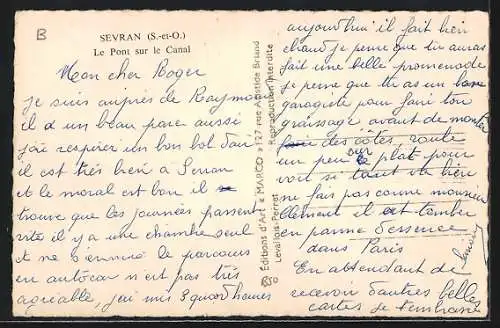 B
SEVRAN (S.-et-O.)
Le Pont sur le Canal
Mon cher Roger
je suis auprès de Raymond
il a un beau parc aussi
j'ai respirer un bon bol d'air
il est très bien à Sevran
et le moral est bon il
trouve que les journées passent
vite il y a une chambre seul
et ne s'ennuie le parcours
en autocar n'est pas très
agréable, j'ai mis 3 quard heures
Éditions d'Art « MARCO » 127 rue Aristide Briand
Levallois-Perret
Reproduction Interdite
aujourd'hui il fait bien
chaud je pense que tu auras
fait une belle promenade
je pense que tu as un bon
garagiste pour faire ton
graissage avant de monter
des côtes, route
un peu sur le plat pour
voir si tout va bien
ne fais pas comme monsieur
Clément il est tomber
en panne d'essence
dans Paris
En attendant de
recevoir d'autres belles
cartes je t'embrasse